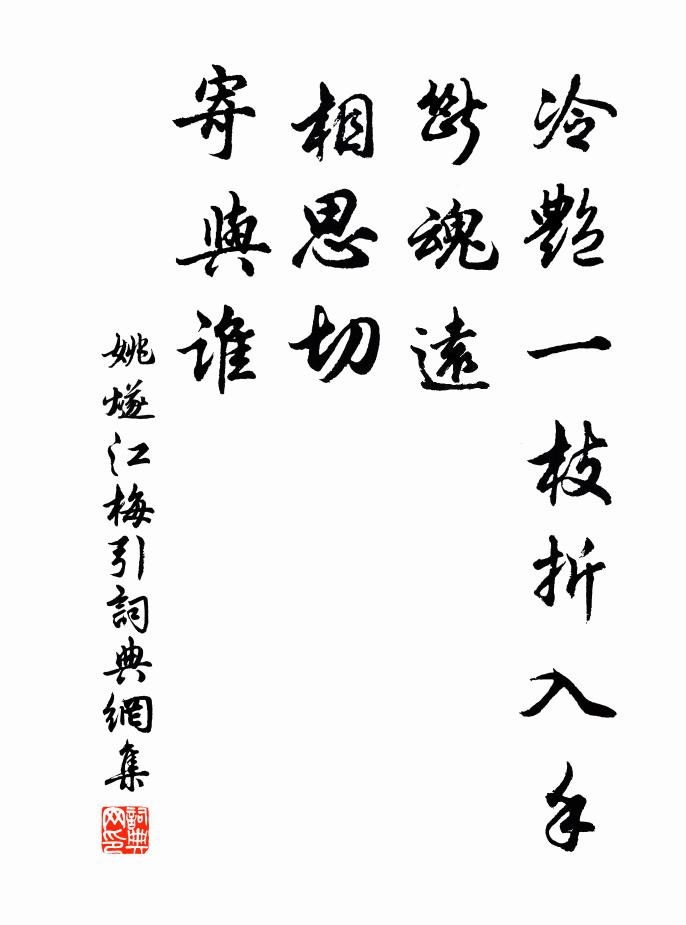 冷艷一枝折入手
斷魂遠
相思切
寄與誰
姚燧江梅引詞典網集
詞典网印